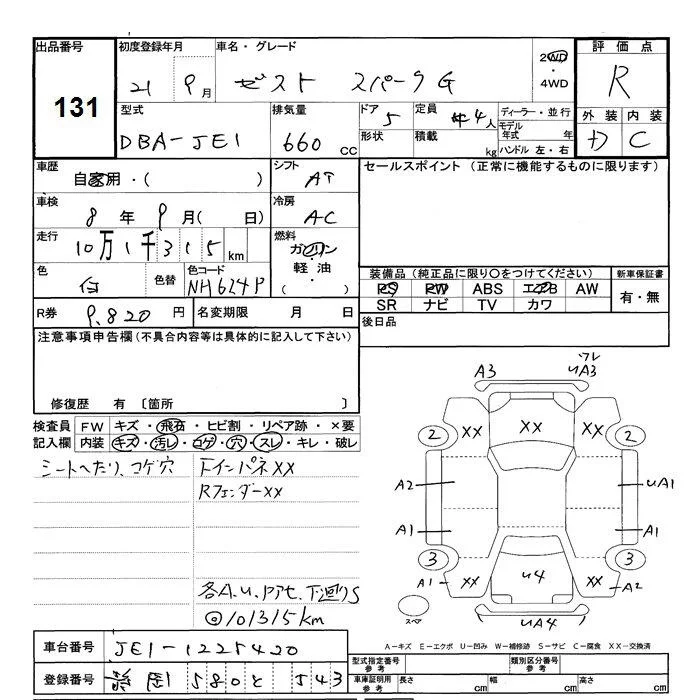 出品番号 初度登録年月 車名・グレード 評価点
131
21 9月 ゼスト スパークG 2WD ・ 4WD R
型式 排気量 ドア 定員 ディーラー・並行 外装 内装
DBA-JE1 660 cc 5 4人 モデル年式 年 C
形状 積載 kg ハンドル 左・右
車歴 シフト セールスポイント (正常に機能するものに限ります)
自家用・( ) AT
車検 冷房
8年 9月( 日) AC
走行 燃料
10万1千315 km ガソリン・軽油・( )
色 白 色替 色コード NH624P
装備品 (純正品に限り○をつけてください) 新車保証書
PS PW ABS エアB AW 有・無
SR ナビ TV カワ
R券 9,820 円 名変期限 月 日 後日品
注意事項申告欄(不具合内容等は具体的に記入して下さい)
修復歴 有 〔箇所 〕
検査員記入欄 FW キズ・飛石・ヒビ割・リペア跡・×要
内装 キズ・汚レ・コゲ・穴・スレ・キレ・破レ
シートへたり、コゲ穴
インパネXX
RフェンダーXX
各A.U. 下廻りS
◎101315km
A3 ワレ UA3
XX XX XX
2 2
A2 UA1
A1 A1
3 3
A1 XX U4 XX A2
スペア UA4
A-キズ E-エクボ U-凹み W-補修跡 S-サビ C-腐食 XX-交換済
車台番号 JE1-1225420
型式指定番号 参考 類別区分番号 参考
登録番号 静岡 580 543
車庫証明用 参考 長さ cm 幅 cm 高さ cm